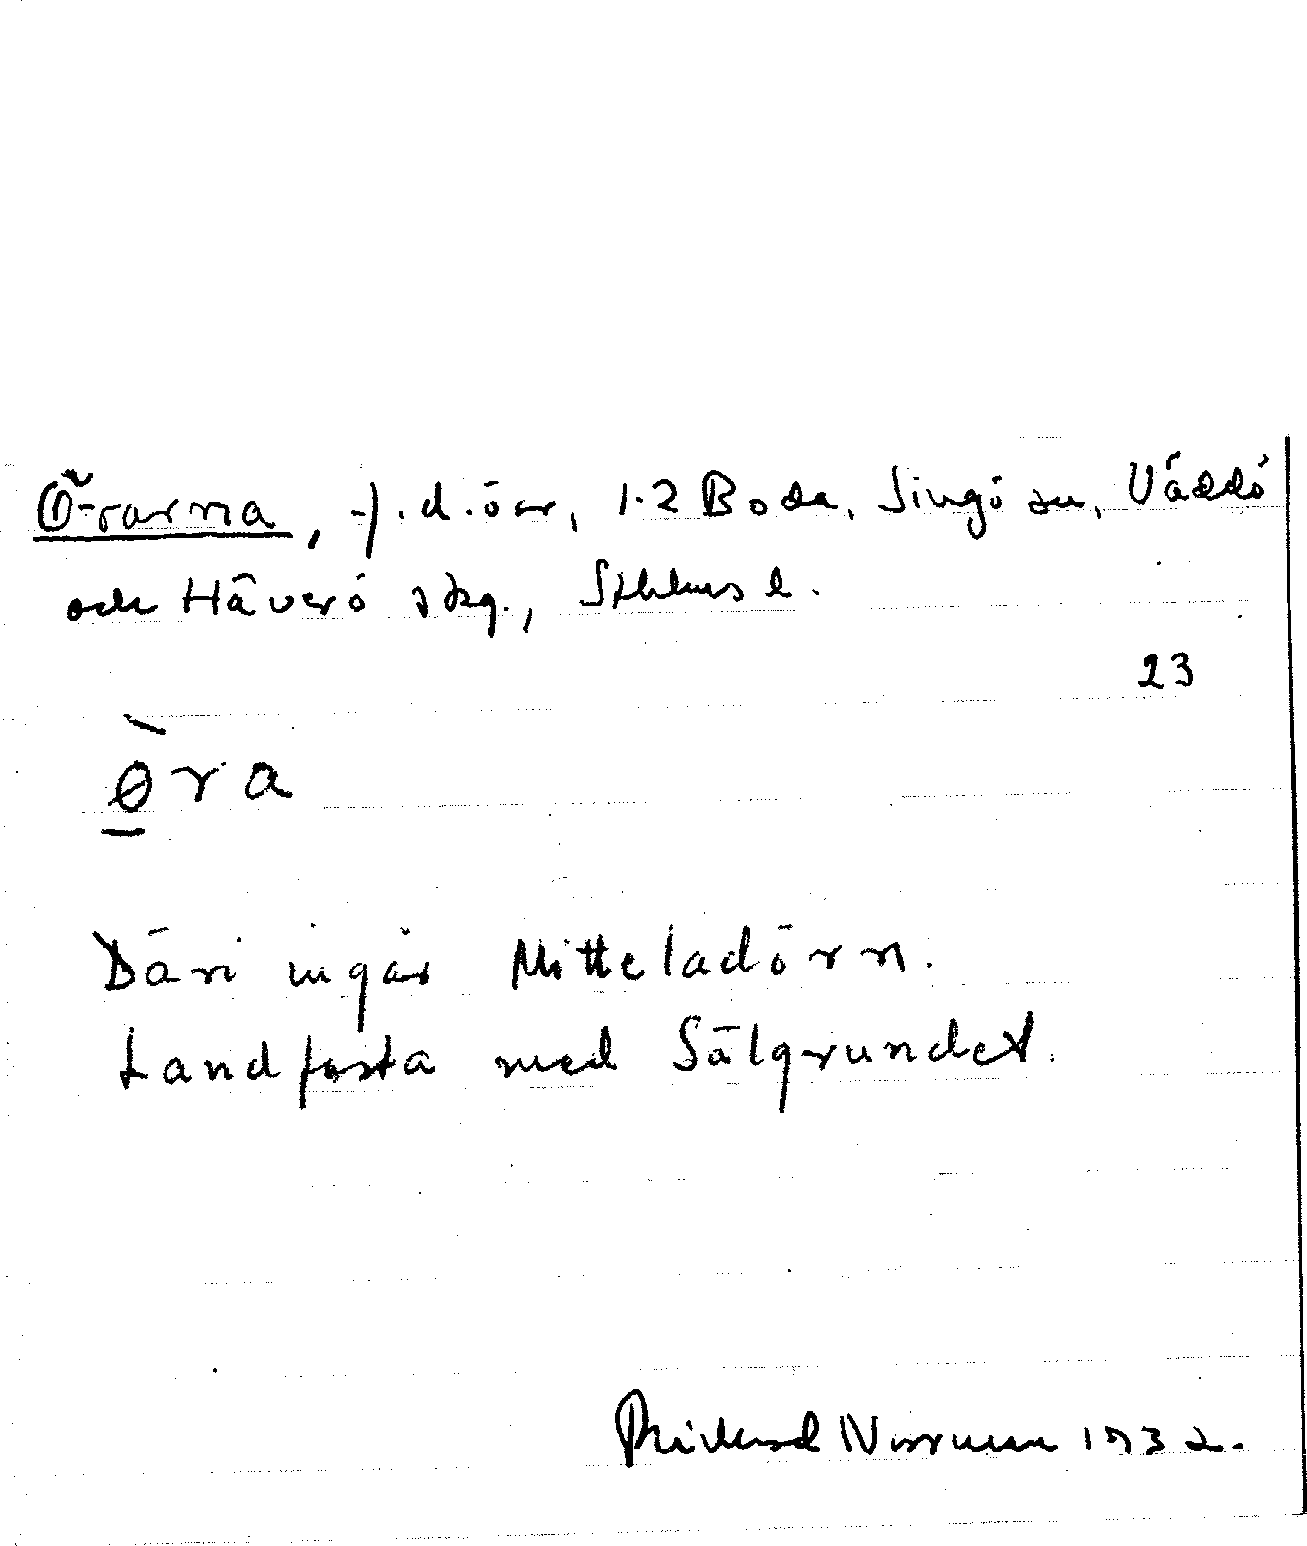 Örarna, f.d. öar, 1-2 Boda, Singö sn, Väddö
och Häverö skg., Sthlms l.
23
ø̠̀ra
Däri ingår Mitteladörn.
Landfasta med Sälgrundet.
Rickard Norrman 1932.